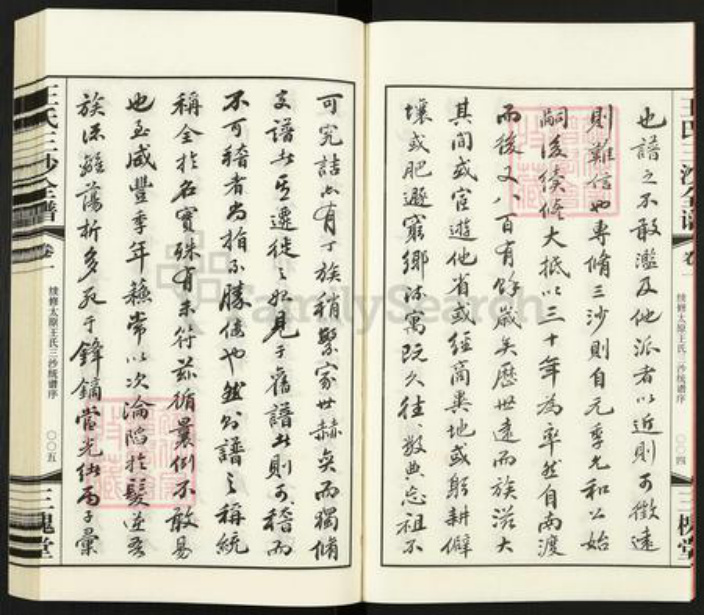 也譜之不敢濫及他派者以近則可徵遠
則難信也專脩三沙則自元季九和公始
嗣後續修大抵以三十年為率然自南渡
而後又八百有餘歲矣歷世遠而族滋大
其間或宦遊他省或經商異地或躬耕僻
壤或肥遯窮鄉流寓既久往往數典忘祖不
王氏三沙全譜
卷一
续修太原王氏三沙统谱序
〇〇四
三槐堂
可究詰亦有丁族稍繁家世赫奕而獨脩
支譜者至遷徙之始見于舊譜者則可稽而
不可稽者尚指不勝僂也然則譜之稱統
稱全於名實殊有未符茲循曩例不敢易
也至咸豐季年蘇常以次淪陷於髮逆吾
族流離蕩析多死于鋒鏑當光緒丙子彙
王氏三沙全譜
卷一
续修太原王氏三沙统谱序
〇〇五
三槐堂
FamilySearch